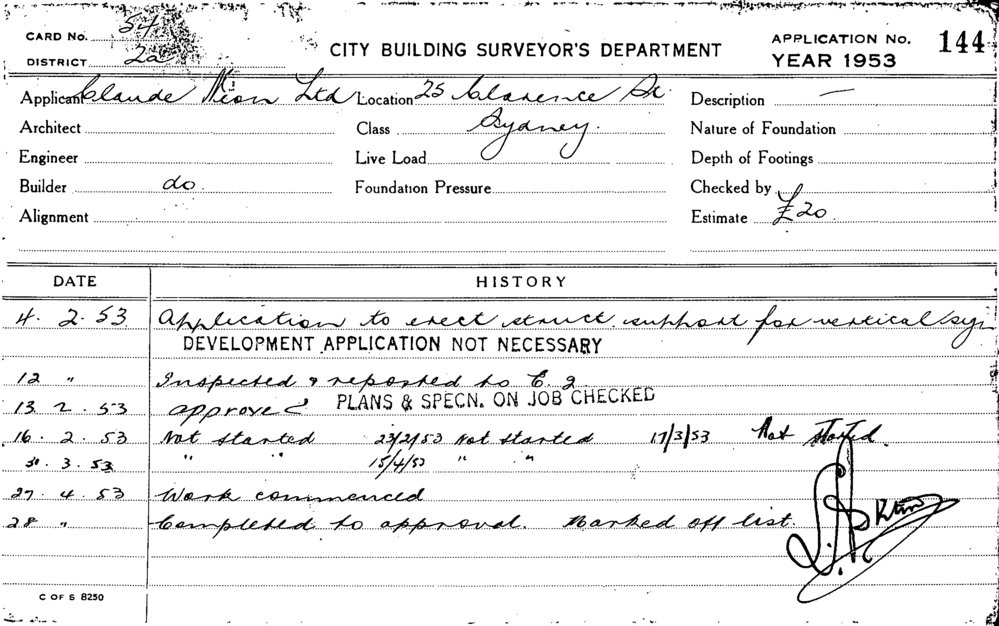 CARD No. 54
DISTRICT 2a
CITY BUILDING SURVEYOR'S DEPARTMENT
APPLICATION No. 144
YEAR 1953
Applicant Claude Neon Ltd Location 25 Clarence St Description —
Architect Class Sydney. Nature of Foundation
Engineer Live Load Depth of Footings
Builder do. Foundation Pressure Checked by
Alignment Estimate £20.
DATE HISTORY
4. 2. 53 Application to erect struct. support for vertical sign
DEVELOPMENT APPLICATION NOT NECESSARY
12 " Inspected & reported to
13. 2. 53 approved PLANS & SPECN. ON JOB CHECKED
16. 2. 53 Not started 23/2/53 Not started 17/3/53 Not Started.
. 3. 53 " " 15/4/53 " "
27. 4. 53 Work commenced
28 " Completed to approval. Marked off list.
C OF S 8250